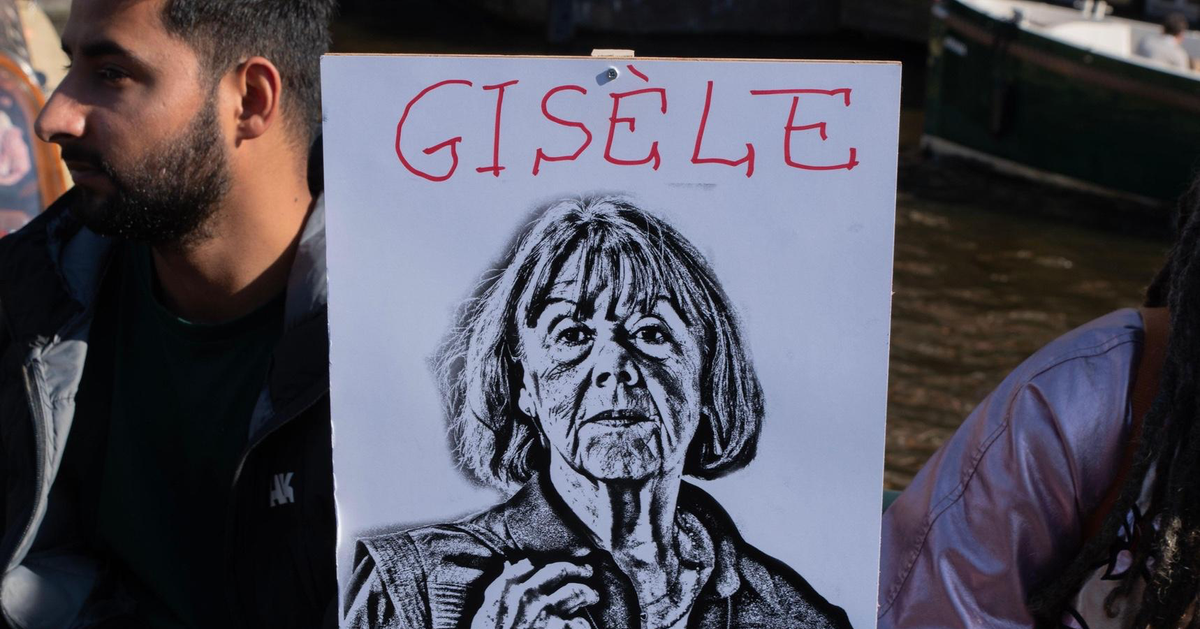 GISÈLE
AK